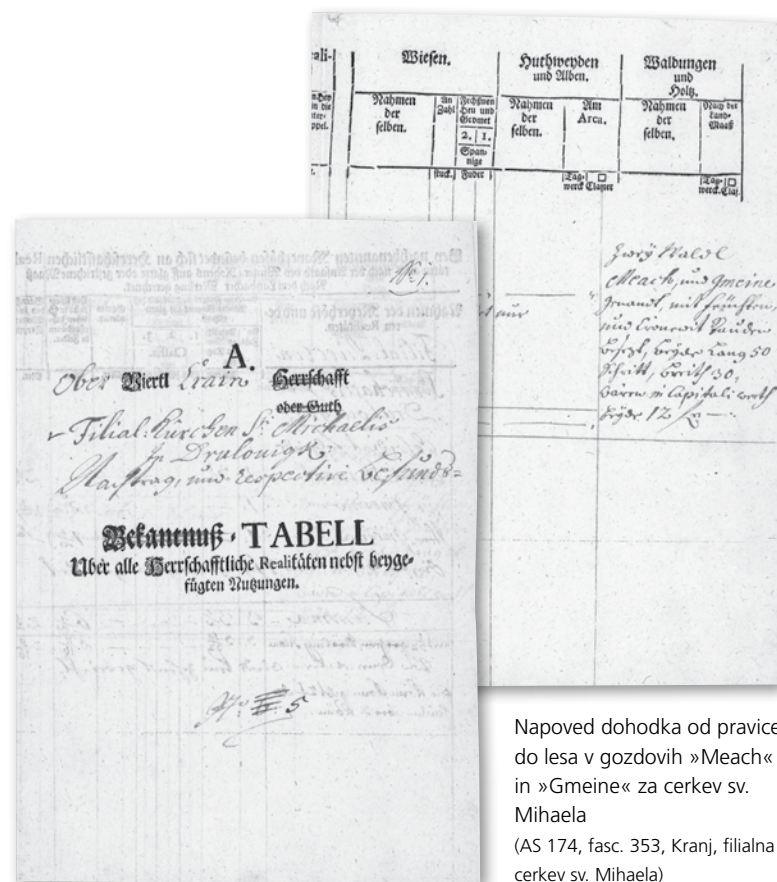 Wiesen.
Huthweyden
und Alben.
Waldungen
und
Holtz.
Nahmen
der
selben.
An
Zahl
Heu und
Gromet
2. 1.
Span-
nige
stuck. Fuder
Nahmen
der
selben.
Am
Area.
Tag-
werck Claffter
Nahmen
der
selben,
Nach der
Land-
Maaß
Tag-
werck. Claf.
nur
Zwey Waldl
Meach, und Gmeine
genandt, mit
und Cronewit Stauden
besezt, beyde Lang 50
Schritt, breith 30,
in Capitali werth
beyde 12
No: 1.
A.
Ober Viertl Crain Herrschafft
oder Guth
Filial-Kürchen St: Michaelis
in Drulouigk
Nachtrag, und respective befunds-
Bekantnuß-TABELL
Uber alle Herrschafftliche Realitäten nebst beyge-
fügten Nutzungen.
No: 5
Napoved dohodka od pravice
do lesa v gozdovih »Meach«
in »Gmeine« za cerkev sv.
Mihaela
(AS 174, fasc. 353, Kranj, filialna
cerkev sv. Mihaela)